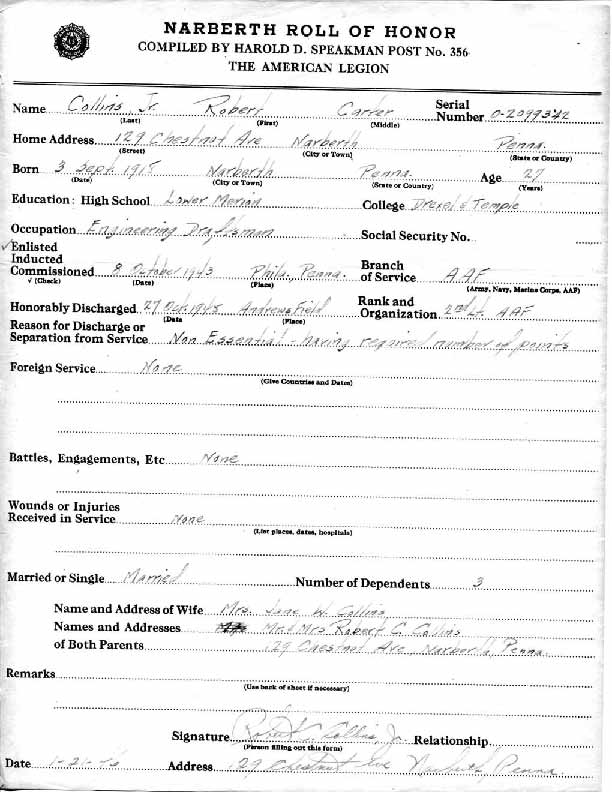 NARBERTH ROLL OF HONOR
COMPILED BY HAROLD D. SPEAKMAN POST No. 356
THE AMERICAN LEGION
Name Collins, Jr. Robert Carter Serial Number 0-2099342
(Last) (First) (Middle)
Home Address 129 Chestnut Ave Narberth Penna.
(Street) (City or Town) (State or Country)
Born 3 Sept. 1918 Narberth Penna. Age 27
(Date) (City or Town) (State or Country) (Years)
Education: High School Lower Merion College Drexel & Temple
Occupation Engineering Draftsman Social Security No.
✓ Enlisted
Inducted
Commissioned 8 October 1943 Phila, Penna. Branch of Service AAF
√ (Check) (Date) (Place) (Army, Navy, Marine Corps, AAF)
Honorably Discharged 27 Oct 1945 Andrews Field Rank and Organization 2nd Lt. AAF
(Date (Place)
Reason for Discharge or
Separation from Service Non Essential - having required number of points
Foreign Service None
(Give Countries and Dates)
Battles, Engagements, Etc None
Wounds or Injuries
Received in Service None
(List places, dates, hospitals)
Married or Single Married Number of Dependents 3
Name and Address of Wife Mrs. Jane W. Collins
Names and Addresses Mr & Mrs Robert C. Collins
of Both Parents 129 Chestnut Ave, Narberth, Penna.
Remarks
(Use back of sheet if necessary)
Signature Robert C. Collins, Jr. Relationship
(Person filling out this form)
Date 1-21-46 Address 129 Chestnut Ave Narberth, Penna.